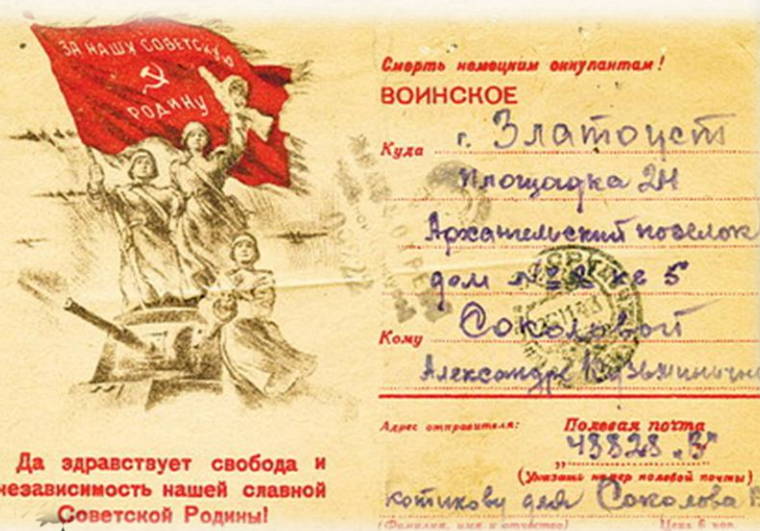 ЗА НАШУ СОВЕТСКУЮ
РОДИНУ
Да здравствует свобода и
независимость нашей славной
Советской Родины!
Смерть немецким оккупантам!
ВОИНСКОЕ
Куда г. Златоуст
площадка 2Н
Архангельский поселок
дом № кв 5
Кому Соколовой
Александре Кузьминичне
Адрес отправителя: Полевая почта
(Указать номер полевой почты)
котикову для Соколова В
(Фамилия, имя и отчество) Цена 6 коп.